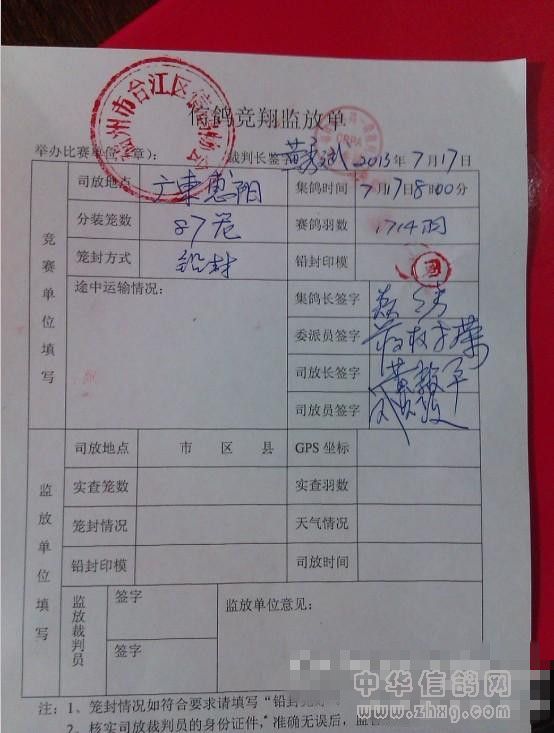 信鸽竞翔监放单
福州市台江区信鸽协会
CRPA
举办比赛单位(章): 裁判长签字 2013年7月17日
竞赛单位填写
司放地点 广東惠阳 集鸽时间 7月17日8时00分
分装笼数 87笼 赛鸽羽数 1714羽
笼封方式 铅封 铅封印模
途中运输情况: 集鸽长签字
委派员签字
司放长签字
司放员签字
监放单位填写
司放地点 市 区 县 GPS 坐标
实查笼数 实查羽数
笼封情况 天气情况
铅封印模 司放时间
监放裁判员 签字 监放单位意见:
签字
注: 1、笼封情况如符合要求请填写“铅封完好
2、核实司放裁判员的身份证件,准确无误后,监
中华信鸽网
www.zhxg.com